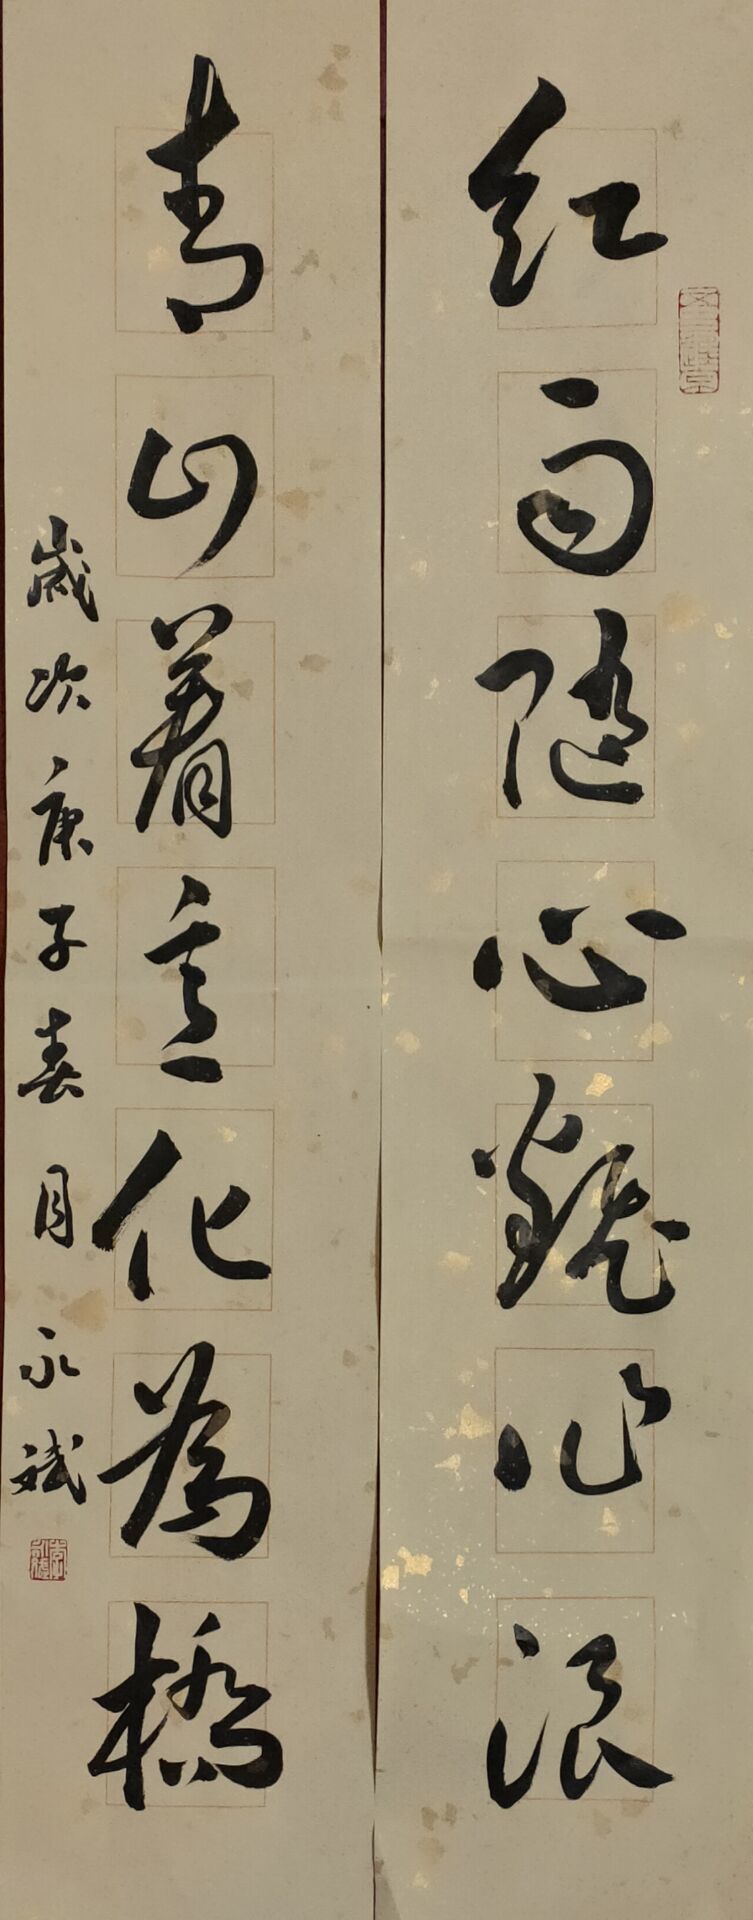 紅雨隨心飜作浪
青山着意化為橋
歲次庚子春月永斌